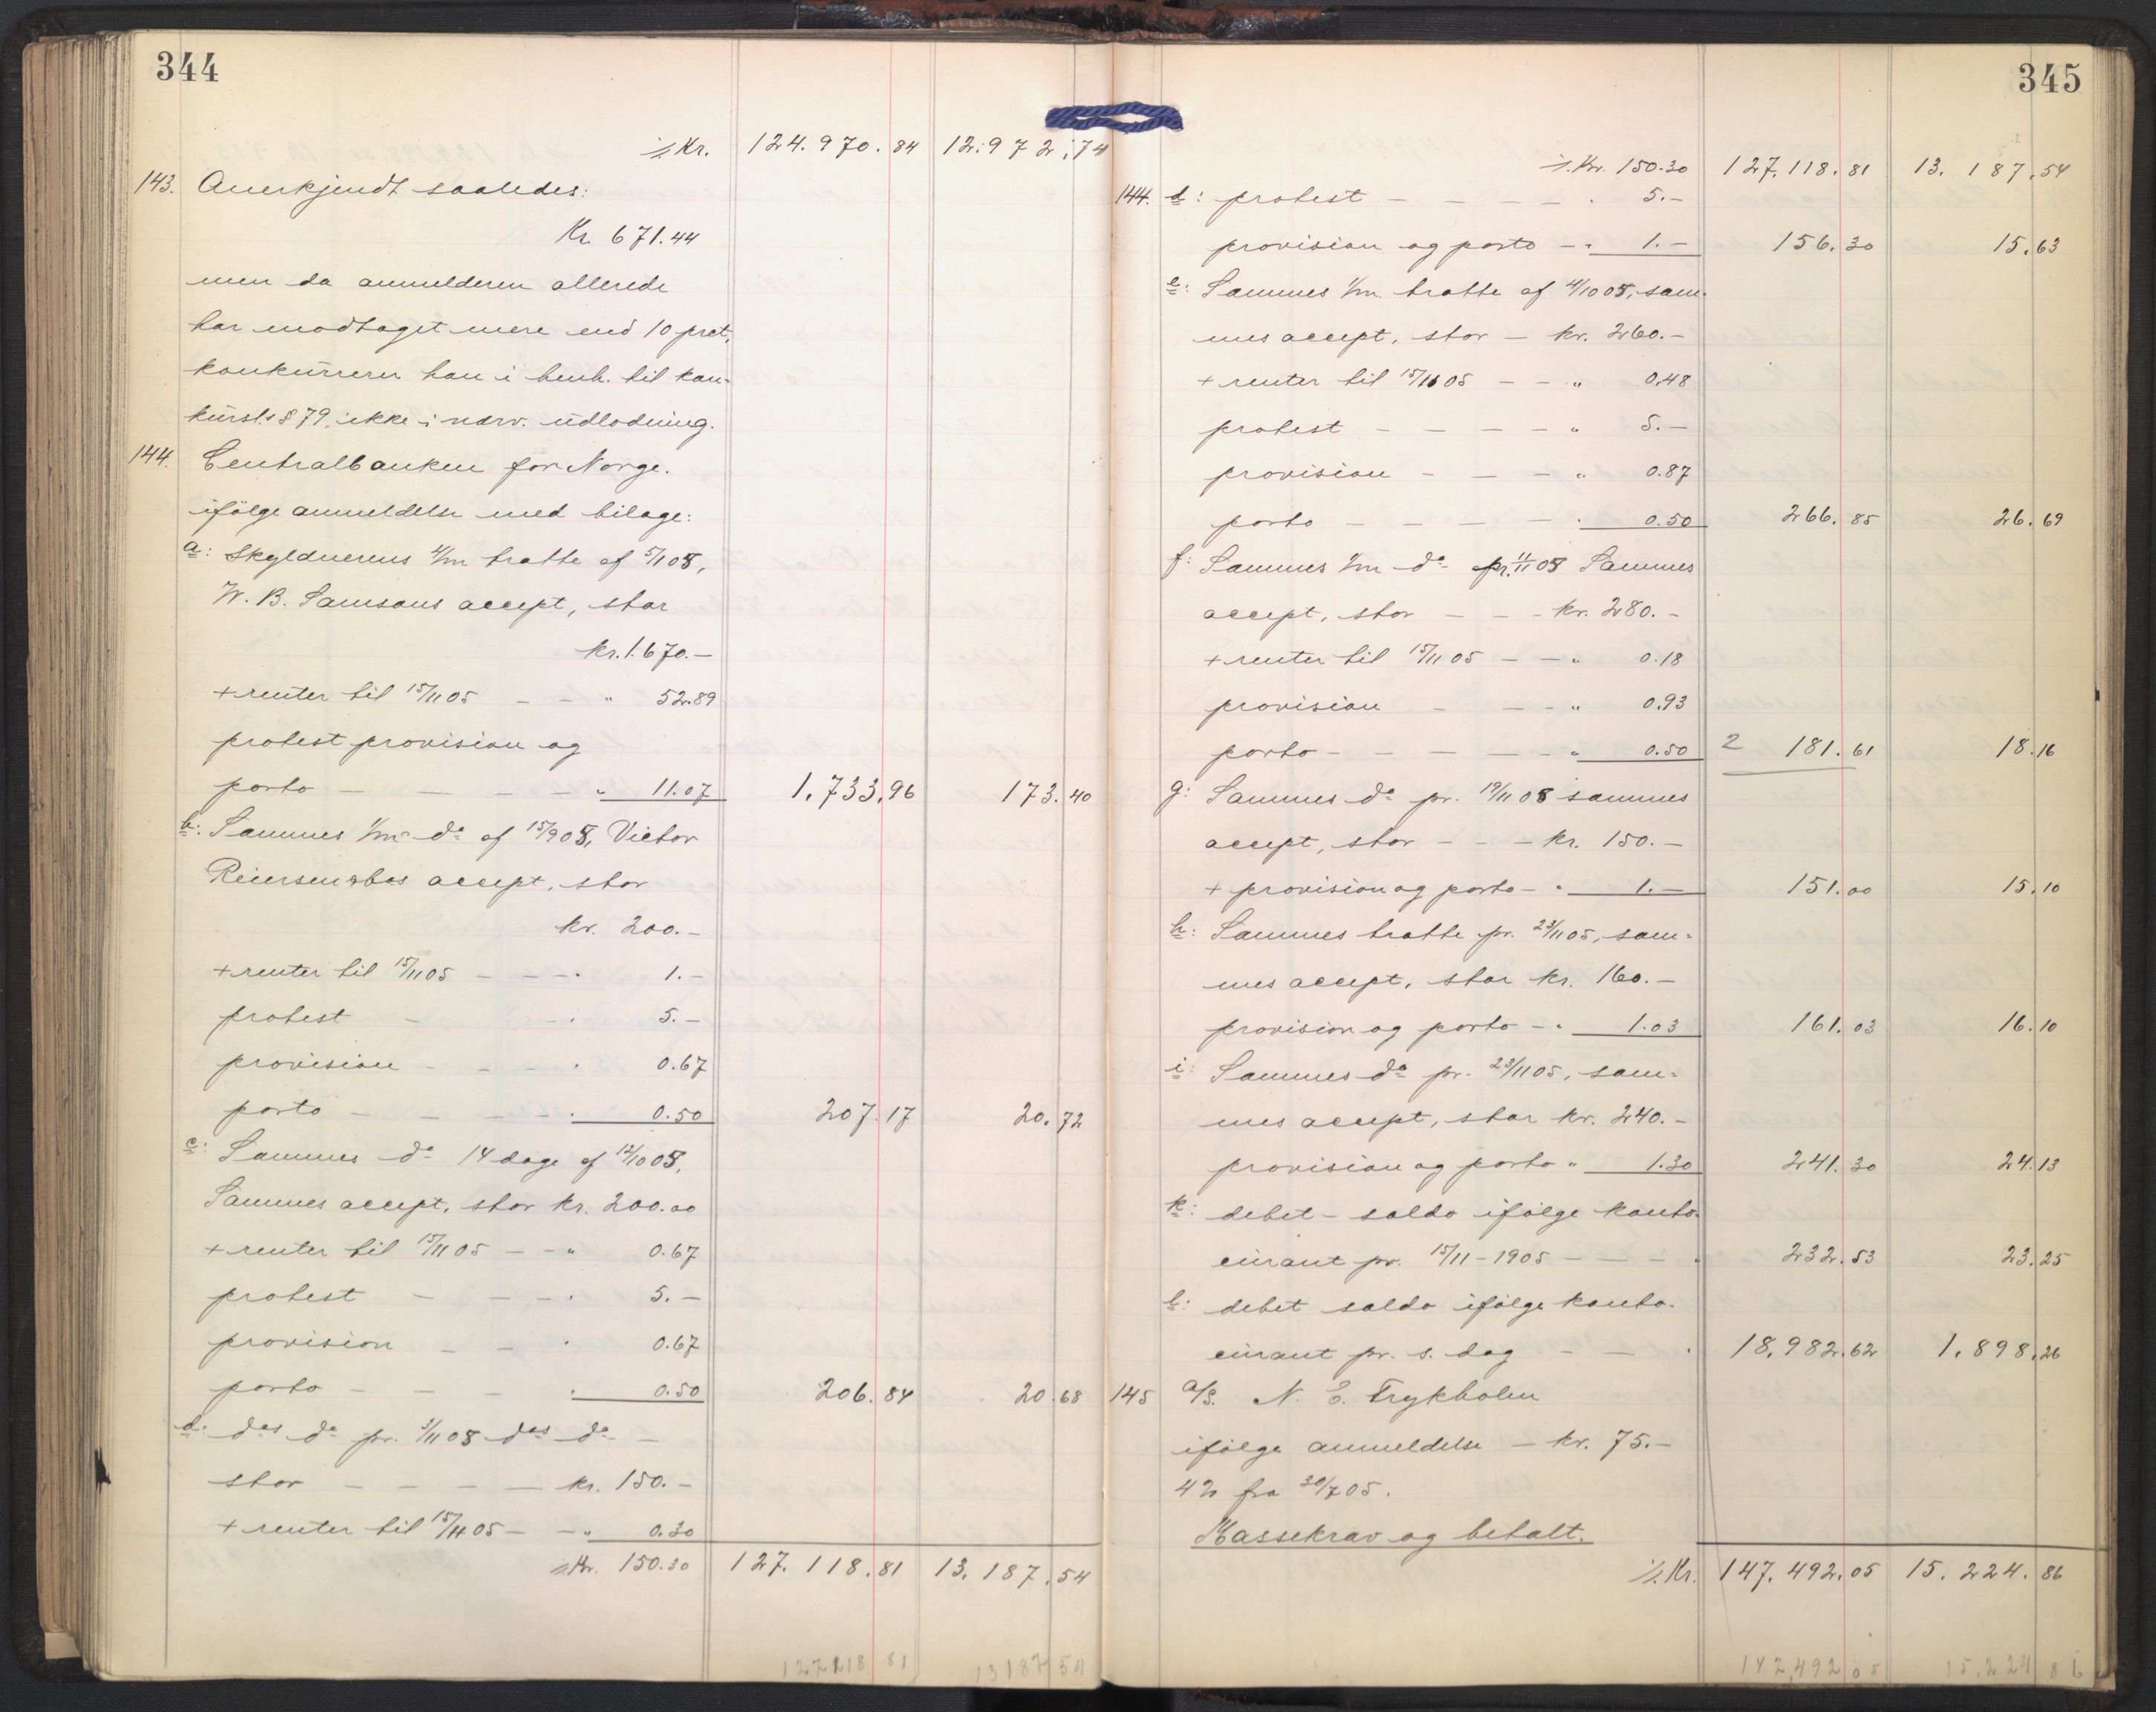 344
⁒ Kr. 124.970.84 12.972.74
143. Anerkjendt saaledes:
Kr. 671.44
men da anmelderen allerede
har modtaget mere end 10 prct,
konkurrerer han i henh. til kon-
kursl.s § 79, ikke i nærv. udlodning.
144. Centralbanken for Norge.
ifölge anmeldelse med bilage:
a: Skyldnerens 4/m tratte af 5/1 05,
W. B. Samsons accept, stor
kr. 1.670.—
+ renter til 15/11 05 — — " 52.89
protest provision og
porto — — — — " 11.07 1.733.96 173.40
b: Sammes 1/m do af 15/9 05, Victor
Reiersen & bos accept, stor
kr. 200.—
+ renter til 15/11 05 — — - " 1.—
protest — - " 5.—
provision - — - " 0.67
porto — — — - " 0.50 207.17 20.72
c: Sammes do 14 dage af 12/10 05,
Sammes accept, stor kr. 200.00
+ renter til 15/11 05 — - " 0.67
protest — — - " 5.—
provision — — " 0.67
porto — — — " 0.50 206.84 20.68
d: des do pr. 3/11 05 des do —
stor — — — — kr. 150.—
+ renter til 15/11 05 — - " 0.30
⁒ Kr. 150.30 127.118.81 13.187.54
127118 81 13187 54
345
⁒ Kr. 150.30 127.118.81 13.187.54
144. d: protest — — — — " 5.—
provision og porto - " 1.— 156.30 15.63
e: Sammes 1/m tratte af 4/10 05, sam-
mes accept, stor — kr. 260.—
+ renter til 15/11 05 — - " 0.48
protest — — — — " 5.—
provision — — - " 0.87
porto — — — — " 0.50 266.85 26.69
f: Sammes 1/m do pr. 11/11 05 Sammes
accept, stor — — - kr. 280.—
+ renter til 15/11 05 — - " 0.18
provision — — - " 0.93
porto — — — — " 0.50 2 181.61 18.16
g: Sammes do pr. 19/11 05 sammes
accept, stor — - — kr. 150.—
+ provision og porto - " 1.— 151.00 15.10
h: Sammes tratte pr. 23/11 05, sam-
mes accept, stor kr. 160.—
provision og porto - " 1.03 161.03 16.10
i: Sammes do pr. 23/11 05, sam-
mes accept, stor kr. 240.—
provision og porto " 1.30 241.30 24.13
k: debet-saldo ifölge konto-
curant pr. 15/11-1905 — — — " 232.53 23.25
l: debet saldo ifölge konto-
curant pr. s. dag — — " 18.982.62 1.898.26
145 a/s. N. E. Frykholm
ifölge anmeldelse — kr. 75.—
42 fra 30/7 05.
Massekrav og betalt.
⁒ Kr. 147.492.05 15.224.86
147.492 05 15.224 86